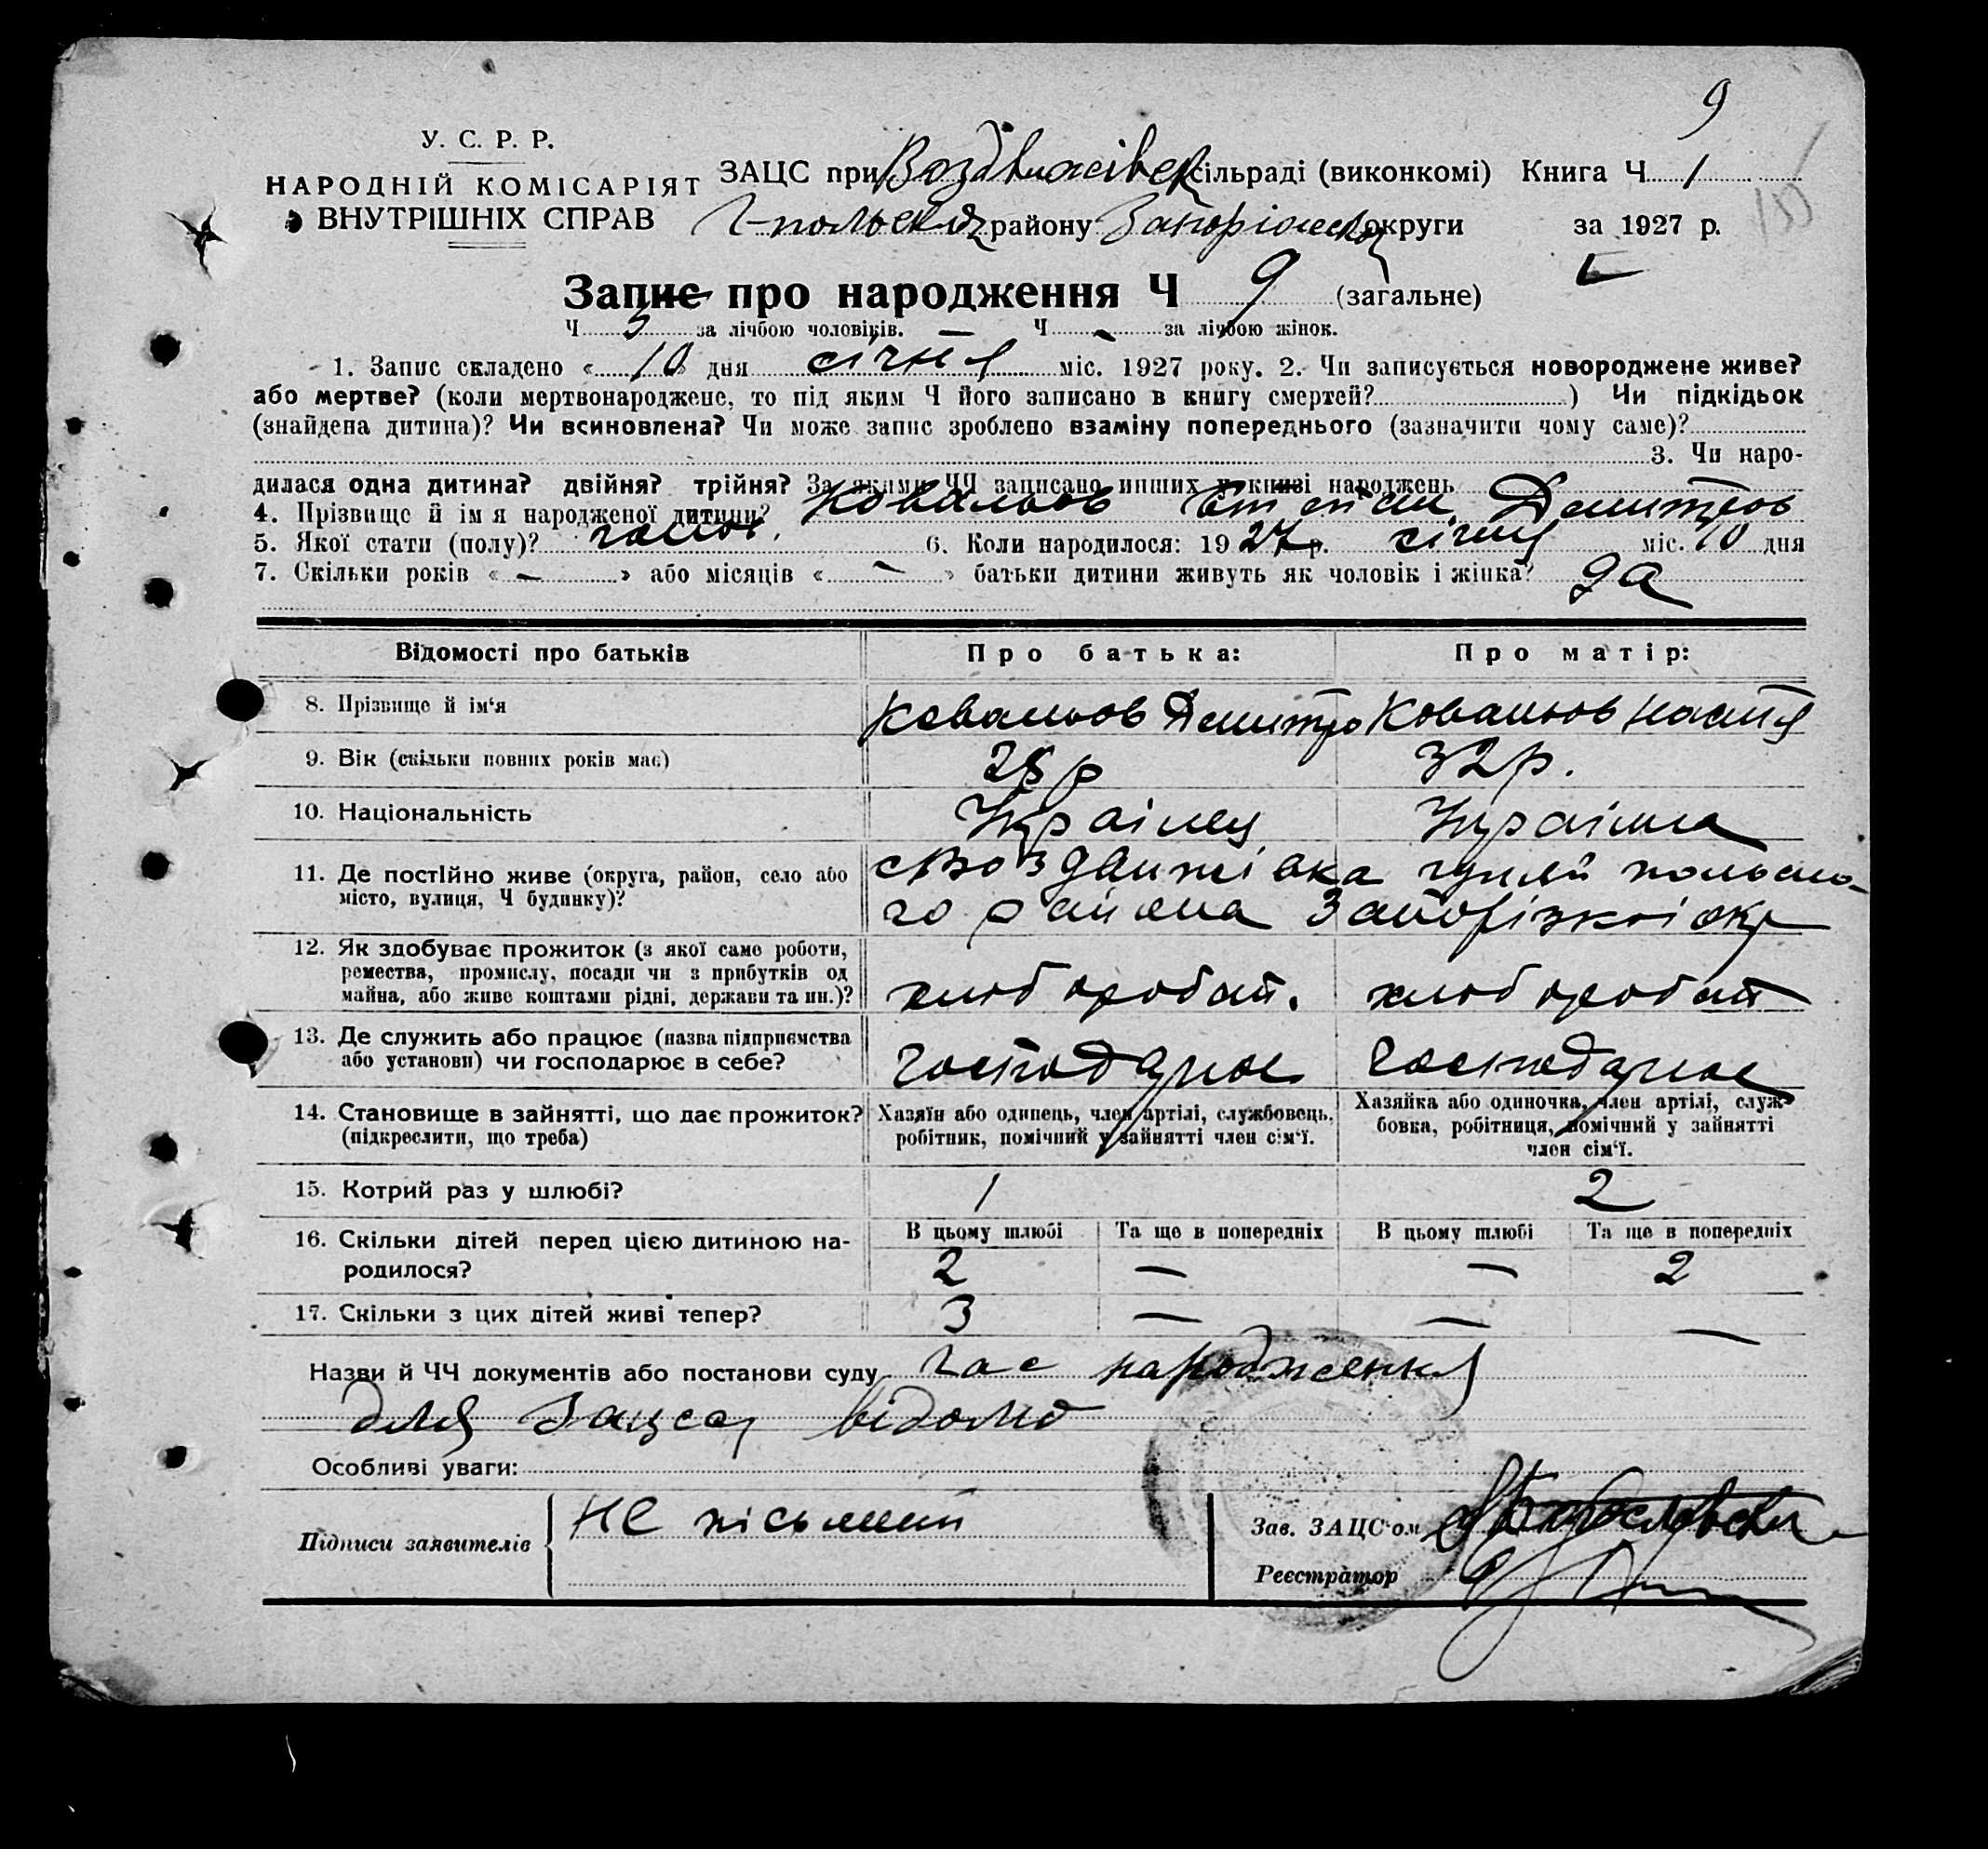 9
У. С. Р. Р.
НАРОДНІЙ КОМІСАРІЯТ
ВНУТРІШНІХ СПРАВ
ЗАЦС при Воздвижівск сільраді (виконкомі) Книга Ч 1
Г-польськ району Запоріжської округи за 1927 р.
Запис про народження Ч 9 (загальне)
Ч 5 за лічбою чоловіків. — Ч - за лічбою жінок.
1. Запис складено « 10 » дня січня міс. 1927 року. 2. Чи записується новороджене живе?
або мертве? (коли мертвонароджене, то під яким Ч його записано в книгу смертей? ) Чи підкідьок
(знайдена дитина)? Чи всиновлена? Чи може запис зроблено взаміну попереднього (зазначити чому саме)?
3. Чи наро-
дилася одна дитина? двійня? трійня? За якими ЧЧ записано инших в книзі народжень
4. Прізвище й ім я народженої дитини? Ковальов Дмитров
5. Якої стати (полу)? чолов. 6. Коли народилося: 1927 р. січня міс. 10 дня
7. Скільки років « — » або місяців « — » батьки дитини живуть як чоловік і жінка? да
Відомості про батьків Про батька: Про матір:
8. Прізвище й ім‘я Ковальов Дмитро Ковальов Настя
9. Вік (скільки повних років має) 28 р 32 р.
10. Національність Українец Українка
11. Де постійно живе (округа, район, село або
місто, вулиця, Ч будинку)?
с Воздвижівка гуляй польсько-
го района Запорізкої окр
12. Як здобуває прожиток (з якої саме роботи,
ремества, промислу, посади чи з прибутків од
майна, або живе коштами рідні, держави та ин.)?
хлібороб хлібороб
13. Де служить або працює (назва підприємства
або установи) чи господарює в себе?
господарює господарює
14. Становище в зайнятті, що дає прожиток?
(підкреслити, що треба)
Хазяїн або одинець, член артілі, службовець,
робітник, помічний у зайнятті член сім‘ї.
Хазяйка або одиночка, член артілі, служ-
бовка, робітниця, помічний у зайнятті
член сім‘ї.
15. Котрий раз у шлюбі? 1 2
16. Скільки дітей перед цією дитиною на-
родилося?
В цьому шлюбі Та ще в попередніх В цьому шлюбі Та ще в попередніх
2 — — 2
17. Скільки з цих дітей живі тепер? 3 — — —
Назви й ЧЧ документів або постанови суду час народження
для Зацса відомо
Особливі уваги:
Підписи заявителів не пісьмент
Зав. ЗАЦС‘ом
Реєстратор